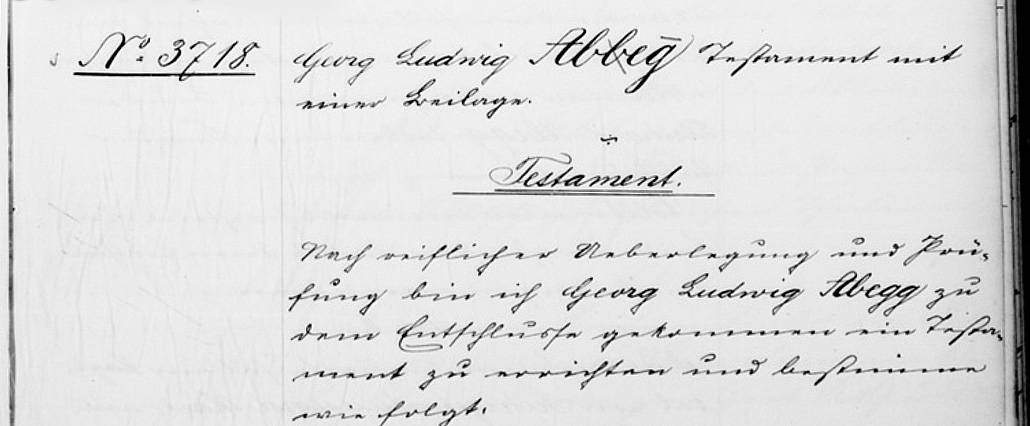 No. 3718. Georg Ludwig Abbeg Testament mit
einer Beilage.
Testament.
Nach reiflicher Ueberlegung und Prü-
fung bin ich Georg Ludwig Abegg zu
dem Entschlusse gekommen ein Testa-
ment zu errichten und bestimme
wie folgt.